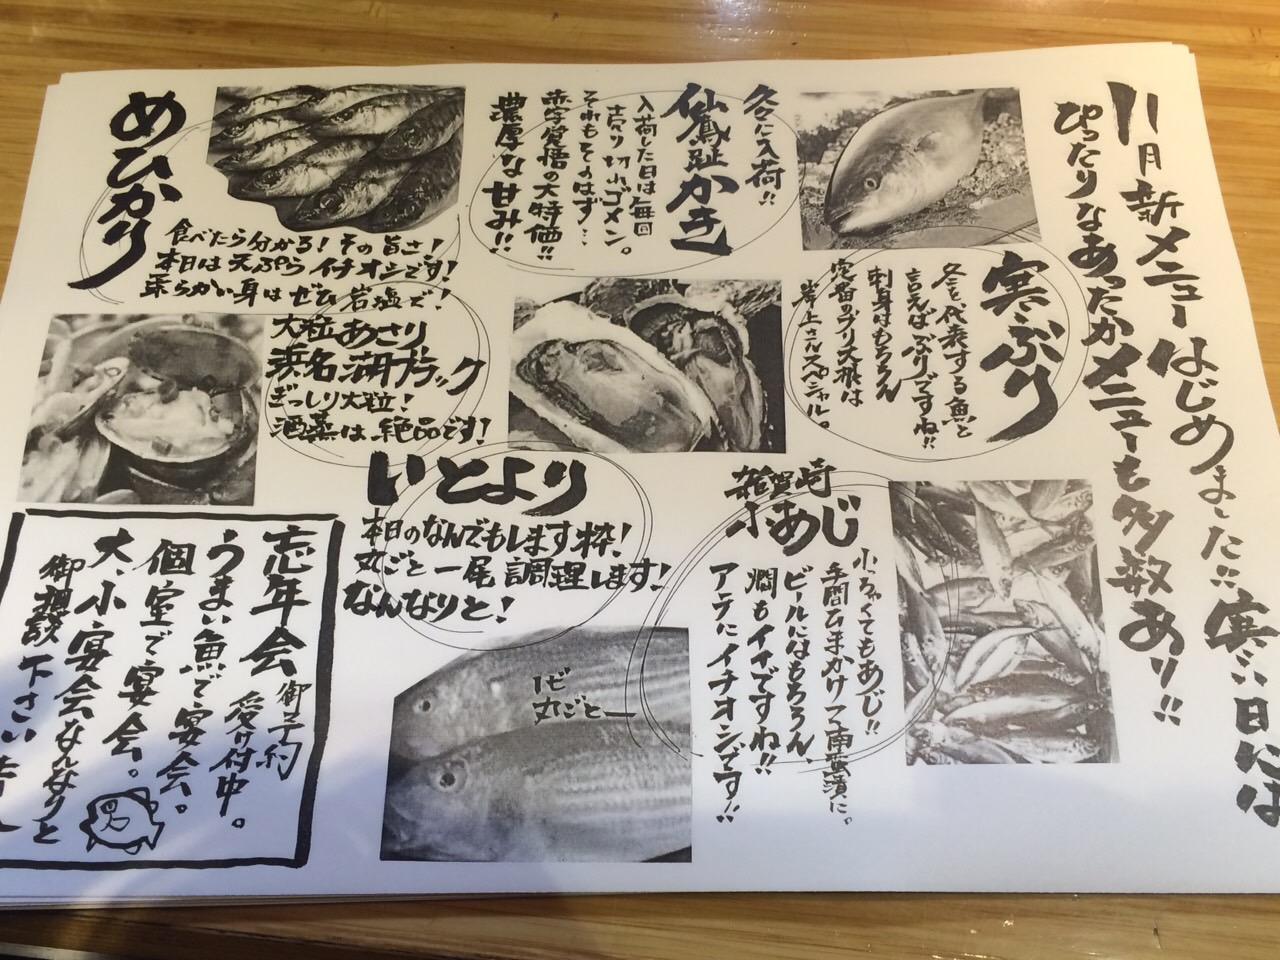 11月新メニューはじめました!!寒い日には
ぴったりなあったかメニューも多数あり!!
寒ぶり
冬を代表する魚と
言えばぶりですね!!
刺身はもちろん
定番のブリ大根は
岸上さんスペシャル。
久々に入荷!!
仙鳳趾かき
入荷した日は毎回
売り切れゴメン。
それもそのはず…
赤字覚悟の大特価!!
濃厚な甘み!!
めひかり
食べたら分かる!その旨さ!
本日は天ぷらイチオシです!
柔らかい身はぜひ岩塩で!
大粒あさり
浜名湖ブラック
ぎっしり大粒!
酒蒸は絶品です!
雑賀崎
小あじ
小っちゃくてもあじ!!
手間ひまかけて南蛮漬に。
ビールにはもちろん、
燗もイイですね!!
アテにイチオシです!!
いとより
本日のなんでもします枠!
丸ごと一尾調理します!
なんなりと!
1ぴ
丸ごと
忘年会御予約
受け付中。
うまい魚で宴会。
個室で宴会。
大、小宴会なんなりと
御相談下さいませ